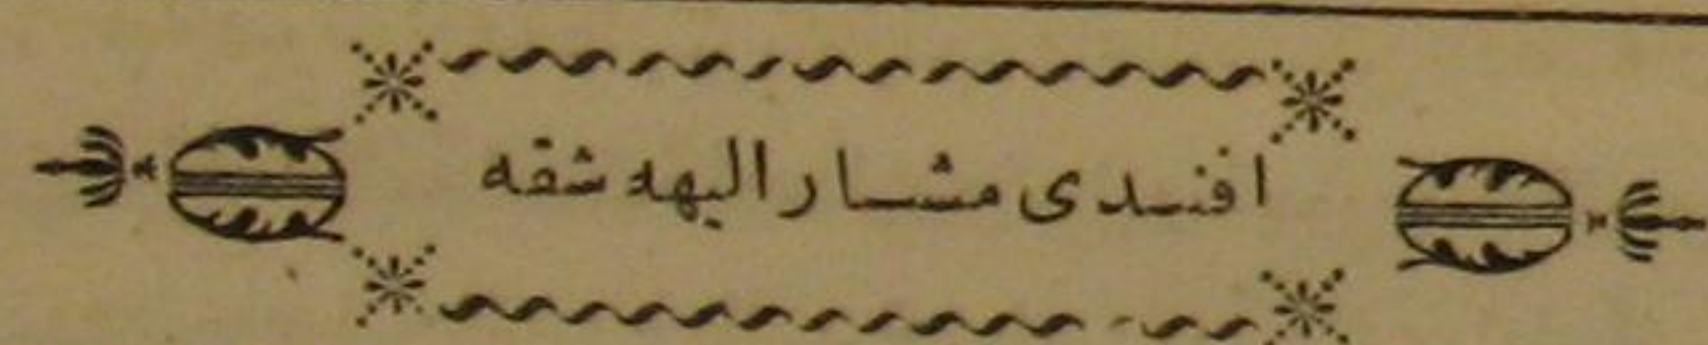 افندی مشار الیهه شقه